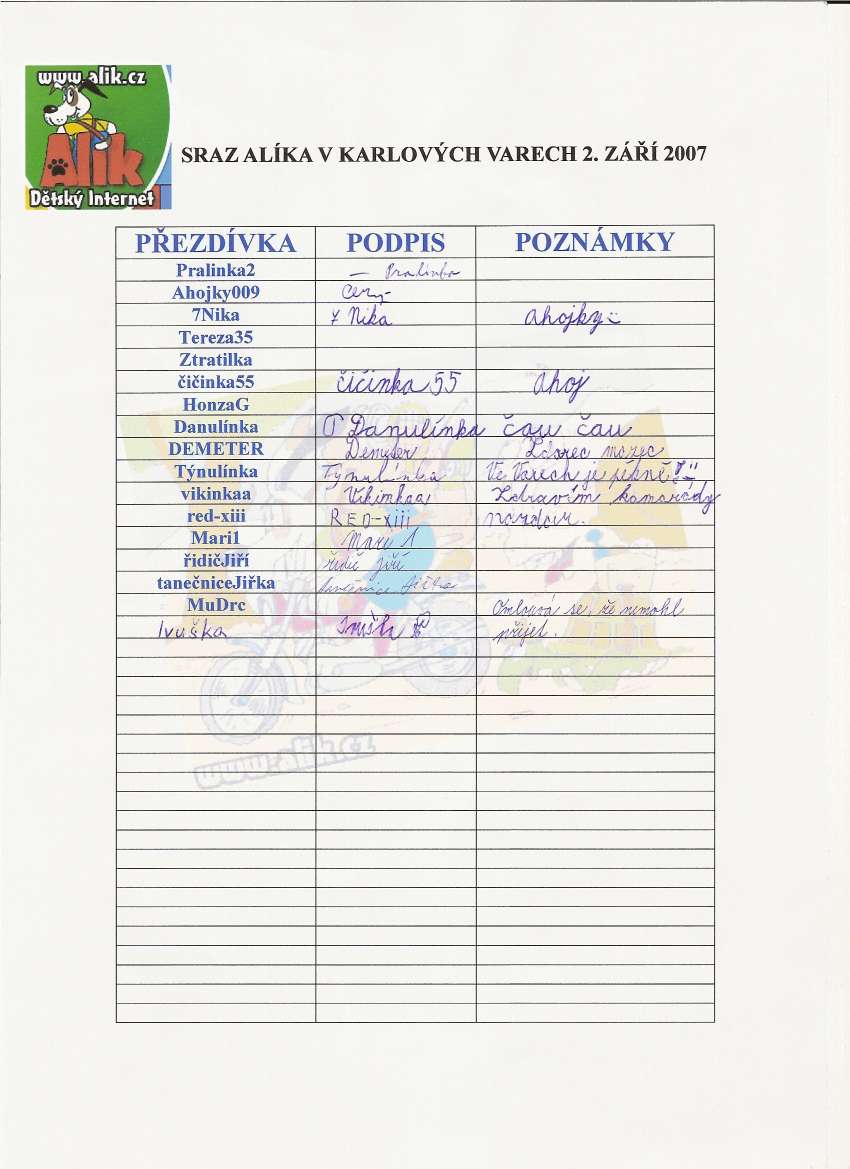 www.alik.cz
Alík
Dětský Internet
SRAZ ALÍKA V KARLOVÝCH VARECH 2. ZÁŘÍ 2007
PŘEZDÍVKA PODPIS POZNÁMKY
Pralinka2 – Pralinka
Ahojky009
7Nika 7 Nika ahojky
Tereza35
Ztratilka
čičinka55 čičinka 55 ahoj
HonzaG
Danulínka Danulínka čau čau
DEMETER Demeter Zdarec mazec
Týnulínka Týnulínka Ve Varech je pěkně
vikinkaa Vikinkaa Zdravím kamarády
red-xiii RED-xiii nazdar.
Mari1 Mari 1
řidičJiří řidič Jiří
tanečniceJiřka tanečnice Jiřka
MuDrc Omlouvá se, že nemohl
Ivuška Ivuška přijet.
www.alik.cz